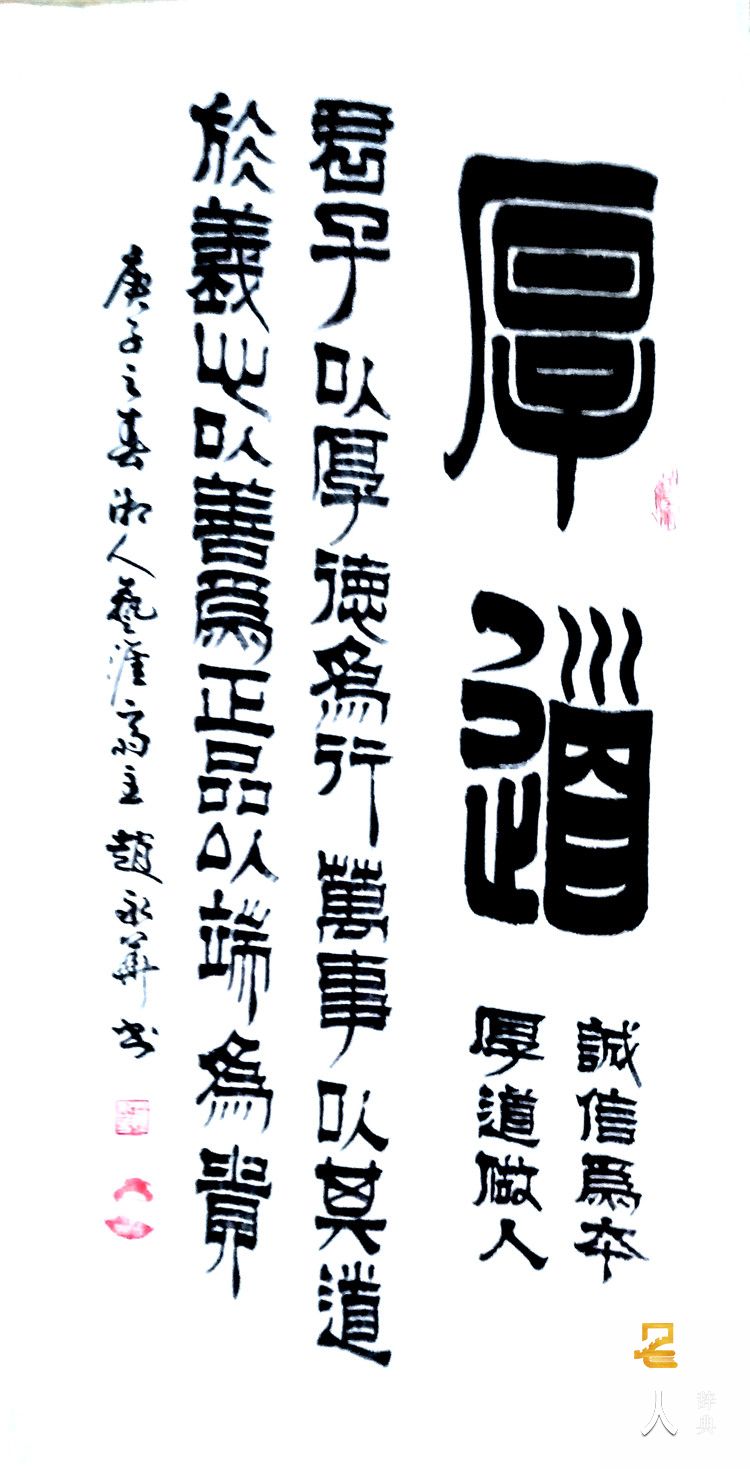 厚道
誠信爲本
厚道做人
君子以厚德爲行萬事以其道
於義心以善爲正品以端爲貴
庚子之春湘人藝涯齋主趙永華书
名人
辞典